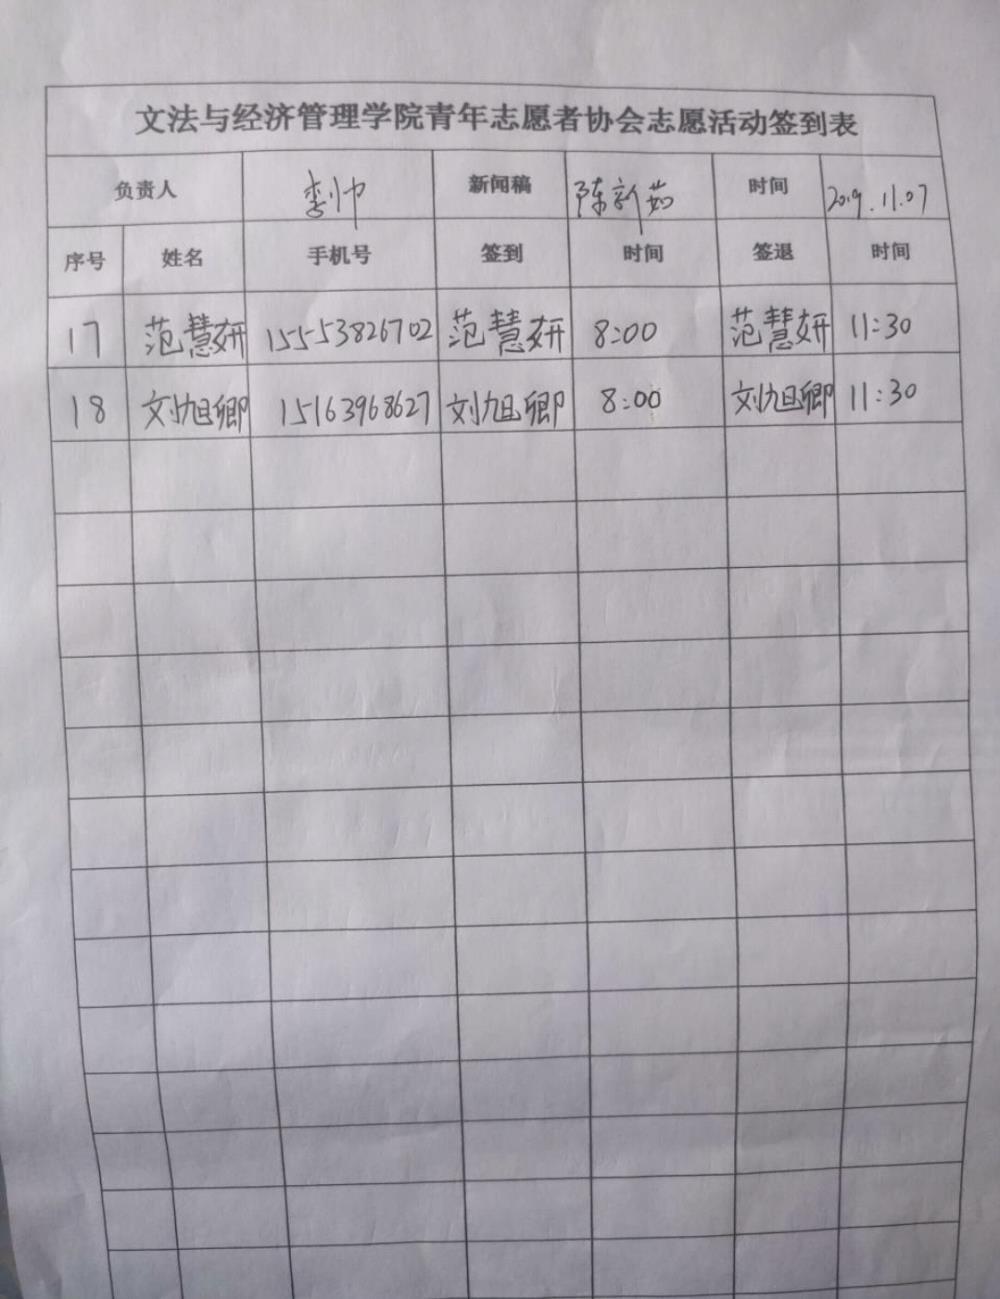 文法与经济管理学院青年志愿者协会志愿活动签到表
负责人 李帅 新闻稿 陈新茹 时间 2019.11.07
序号 姓名 手机号 签到 时间 签退 时间
17 范慧妍 15553826702 范慧妍 8:00 范慧妍 11:30
18 刘旭卿 15163968627 刘旭卿 8:00 刘旭卿 11:30